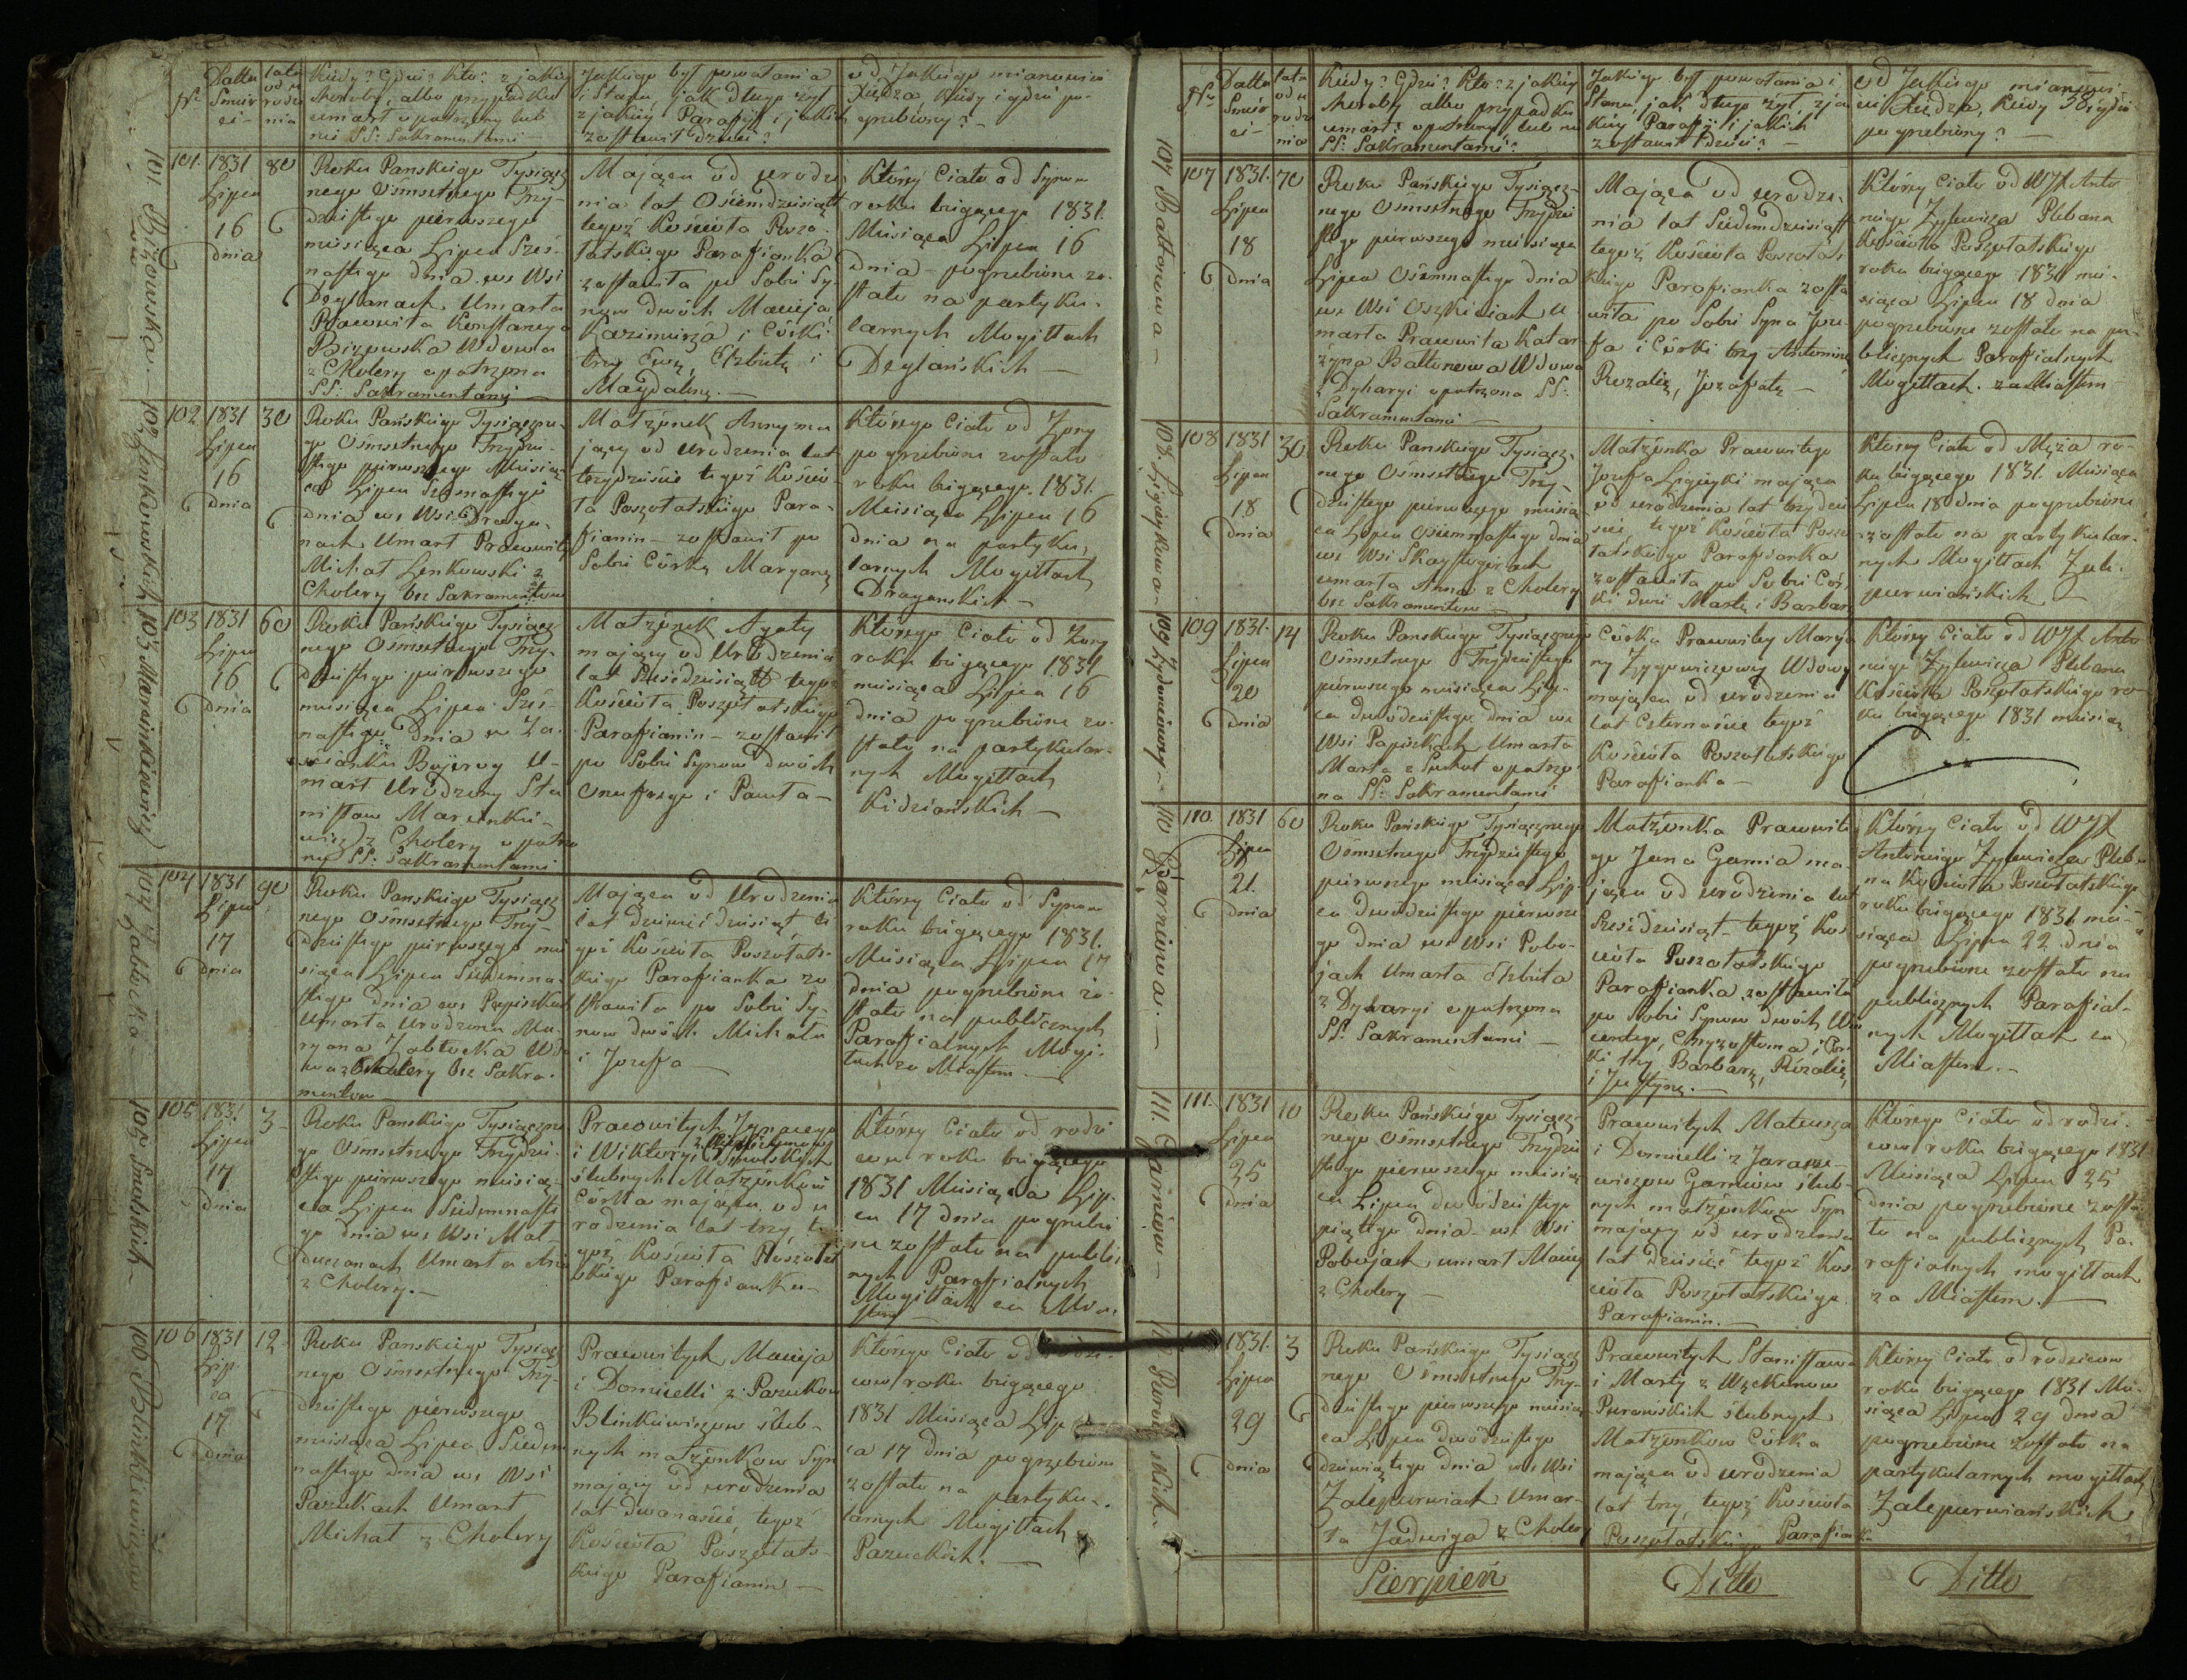 Nr
Datta
Smier
ci -
lata
od u
rodze
nia
Kiedy? Gdzie? Kto? z jakiey
choroby, albo przypadku
umarł opatrzony lub
nie SS: Sakramentami
Jakiego był powołania
i Stanu jak długo żył
z jakiéy Parafii i jakich
zostawił dzieci?
od Jakiego mianowicie
Xiędza kiedy i gdzie po-
grzebiony? -
101. Bizowska.
101.
1831
Lipca
16
dnia
80
Roku Panskiego Tysiącz
nego Ośmsetnego Trzy-
dziestego pierwszego
miesiąca Lipca Szes-
nastego dnia we Wsi
Deglanach Umarła
Pracowita Konstancya
Bizowska Wdowa
z Cholery opatrzona
SS: Sakramentami
Mająca od urodze
nia lat Osiemdziesiąt
tegoż Kościoła Poszo-
łatskiego Parafianka
zostawiła po Sobie Sy-
now dwóch Macieja
Kazimierza i Córki
trzy Ewę, Elżbietę i
Magdalenę. -
Którey Ciało od Synow
roku bieżącego 1831.
Miesiąca Lipca 16
dnia - pogrzebione zo-
stało na partyku-
larnych Mogiłłach
Deglańskich -
102
1831
Lipca
16
dnia
30
Roku Pańskiego Tysiączne-
go Ośmsetnego Trzydzie-
stego pierwszego Miesią
ca Lipca Szesnastego
dnia we Wsi Draga-
nach Umarł Pracowity
Michał Lenkowski z
Cholery bez Sakramentow
Małżonek Anny ma
jący od Urodzenia lat
trzydzieście tegoż Kościo-
ła Poszołatskiego Para-
fianin - zostawił po
Sobie Córkę Maryannę
Którego Ciało od Żony
pogrzebione zostało
roku bieżącego. 1831.
Miesiąca Lipca 16
dnia na partyku-
larnych Mogiłłach
Draganskich -
103 Marcinkiewicz
103
1831
Lipca
16
dnia
60
Roku Pańskiego Tysiącz
nego Ośmsetnego Trzy-
dziestego pierwszego
miesiąca Lipca Szes-
nastego dnia w Za-
ścianku Bujwey U-
marł Urodzony Sta
nisław Marcinkie-
wicz z Cholery opatrzo
ny SS: Sakramentami
Małżonek Agaty
mający od Urodzenia
lat Sześcdziesiąt tegoż
Kościoła Poszołatskiego
Parafianin - zostawił
po Sobie Synow dwóch
Onufrego i Pawła -
Którego Ciało od Żony
roku bieżącego 1831
miesiąca Lipca 16
dnia pogrzebione zo-
stało na partykular-
nych Mogiłłach
Kidziańskich -
104 Jabłocka
104
1831
Lipca
17
dnia
90
Roku Panskiego Tysiącz
nego Ośmsetnego Trzy-
dziestego pierwszego mie
siąca Lipca Siedemna-
stego dnia we Papiszkach
Umarła Urodzona Ma-
ryana Jabłocka Wdo
wa z Cholery bez Sakra-
mentow
Mająca od Urodzenia
lat dziewięćdziesiąt te
goż Kościoła Poszołats-
kiego Parafianka zo
stawiła po Sobie Sy-
now dwóch Michała
i Jozefa -
Którey Ciało od Synow
roku bieżącego 1831.
Miesiąca Lipca 17
dnia pogrzebione zo-
stało na publicznych
Parafialnych Mogi-
łach za Miastem -
105 Smolskich -
105
1831
Lipca
17
dnia
3
Roku Panskiego Tysiączne
go Ośmsetnego Trzydzie-
stego pierwszego miesią-
ca Lipca Siedemnaste
go dnia we Wsi Mal-
duszanach Umarła
z Cholery. -
Pracowitych Jgnacego
i Wiktoryi Smolskich
ślubnych Małżonków
Córka mająca od u
rodzenia lat trzy te
goż Kościoła Poszołat
skiego Parafianka -
Którey Ciało od rodzi
cow roku bieżącego
1831 Miesiąca Lip-
ca 17 dnia pogrzebio
ne zostało na publicz
nych Parafialnych
Mogiłłach za Mia-
stem -
106 Blinkiewiczow
106
1831
Lip-
ca
17
dnia
12
Roku Panskiego Tysiącz
nego Ośmsetnego Trzy-
dziestego pierwszego
miesiąca Lipca Siedem
nastego dnia we Wsi
Pazukach Umarł
Michał z Cholery
Pracowitych Macieja
i Domicelli z Pazukow
Blinkiewiczow ślub-
nych małżonkow Syn
mający od urodzenia
lat dwanaście tegoż
Kościoła Poszołats-
kiego Parafianin -
Którego Ciało od rodzi-
cow roku bieżącego
1831 Miesiąca Lip-
ca 17 dnia pogrzebione
zostało na partyku-
larnych Mogiłłach
Pazuckich. -
Nr
Datta
Smier
ci -
lata
od u
rodze
nia
Kiedy? Gdzie? Kto? z jakiey
choroby albo przypadku
umarł? opatrzony lub nie
SS: Sakramentami?
Jakiego był powołania i
Stanu, jak długo żył, z ja
kiey Parafii i jakich
zostawił dzieci? -
od Jakiego mianowi
cie Xiędza, kiedy i gdzie
pogrzebiony? -
107 Baltonowa -
107
1831.
Lipca
18
dnia
70
Roku Pańskiego Tysiącz-
nego Ośmsetnego Trzydzie
stego pierwszego miesiąca
Lipca Osiemnastego dnia
we Wsi Oszkiniach U
marła Pracowita Katar
zyna Baltonowa Wdowa
z Dyharyi opatrzona SS:
Sakramentami -
Mająca od urodze-
nia lat Siedemdziesiąt
tegoż Kościoła Poszołats
kiego Parafianka zosta
wiła po Sobie Syna Joze-
fa i Córki trzy Antoninę
Rozalię, Jozafatę -
Którey Ciało od WJX Anto
niego Zylewicza Plebana
Kościoła Poszołatskiego
roku bieżącego 1831 mie-
siąca Lipca 18 dnia
pogrzebione zostało na pu-
blicznych Parafialnych
Mogiłłach. za Miastem -
108
1831
Lipca
18
dnia
30
Roku Panskiego Tysiącz-
nego Ośmsetnego Trzy-
dziestego pierwszego miesią
ca Lipca Osiemnastego dnia
we Wsi Skaystogirach
umarła Anna z Cholery
bez Sakramentow -
Małżonka Pracowitego
Jozefa mająca
od urodzenia lat trzydzie
ście, tegoż Kościoła Poszo
łatskiego Parafianka
zostawiła po Sobie Cór
ki dwie Martę i Barbarę
Którey Ciało od Męża ro-
ku bieżącego 1831. Miesiąca
Lipca 18 dnia pogrzebione
zostało na partykular-
nych Mogiłłach Zale-
purwiańskich
109
1831.
Lipca
20
dnia
14
Roku Panskiego Tysiącznego
Ośmsetnego Trzydziestego
pierwszego miesiąca Lip-
ca dwódziestego dnia we
Wsi Papiszkach Umarła
Marta z Suchot opatrzo-
na SS: Sakramentami
Córka Pracowitey Marya
ny Wdowy
mająca od urodzenia
lat Czternaście tegoż
Kościoła Poszołatskiego
Parafianka -
Którey Ciało od WJX Anto
niego Zylewicza Plebana
Kościoła Poszołatskiego ro-
ku bieżącego 1831 miesiąc
110 Garniowa. -
110.
1831
Lipca
21.
dnia
60
Roku Pańskiego Tysiącznego
Ośmsetnego Trzydziestego
pierwszego miesiąca Lip-
ca dwódziestego pierwsze
go dnia we Wsi Pobo-
jach Umarła Elżbieta
z Dyharyi opatrzona
SS: Sakramentami -
Małżonka Pracowite
go Jana Garnia ma-
jąca od urodzenia lat
Sześcdziesiąt - tegoż Koś
cioła Poszołatskiego
Parafianka zostawiła
po Sobie Synow dwóch Win
centego, Chryzostoma i Cór
ki trzy Barbarę, Rozalię,
i Justynę. -
Którey Ciało od WJX
Antoniego Zylewicza Pleba
na Kościoła Poszołatskiego
roku bieżącego 1831 mie-
siąca Lipca 22 dnia
pogrzebione zostało na
publicznych Parafial-
nych Mogiłłach za
Miastem. -
111. Garniow -
111.
1831
Lipca
25
dnia
10
Roku Pańskiego Tysiącz
nego Ośmsetnego Trzydzie
stego pierwszego miesią
ca Lipca dwódziestego
piątego dnia - we Wsi
Pobojach umarł Maciey
z Cholery -
Pracowitych Mateusza
i Domicelli z Jarase-
wiczow Garniow ślub-
nych małżonkow Syn
mający od urodzenia
lat dziesięć tegoż Koś
cioła Poszołatskiego
Parafianin. -
Którego Ciało od rodzi-
cow roku bieżącego 1831
Miesiąca Lipca 25
dnia pogrzebione zosta-
ło na publicznych Pa-
rafialnych mogiłłach
za Miastem. -
1831.
Lipca
29
dnia
3
Roku Pańskiego Tysiącz
nego Ośmsetnego Trzy-
dziestego pierwszego miesią
ca Lipca dwódziestego
dziewiątego dnia we Wsi
Zalepurwiach Umar-
ła Jadwiga z Cholery
Pracowitych Stanisława
i Marty z
Purwińskich ślubnych
Małżonkow Córka
mająca od urodzenia
lat trzy, tegoż Kościoła
Poszołatskiego Parafianka
Którey Ciało od rodzicow
roku bieżącego 1831 Mie-
siąca Lipca 29 dnia
pogrzebione zostało na
partykularnych mogiłłach
Zalepurwiańskich
Sierpień
Ditto
Ditto